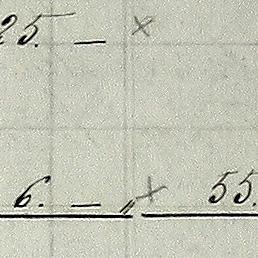 25. — x
6. — „ x 55.